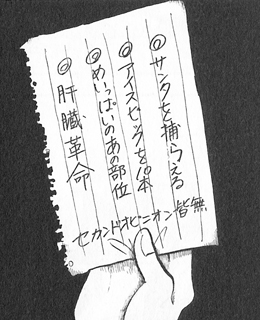 ◎サンタを捕らえる
◎アイスピックを10本
◎めいっぱいのあの部位
◎肝臓革命
セカンドオピニオン皆無